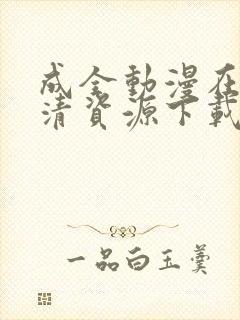 成全動漫在
清資源下載
一品白玉羹